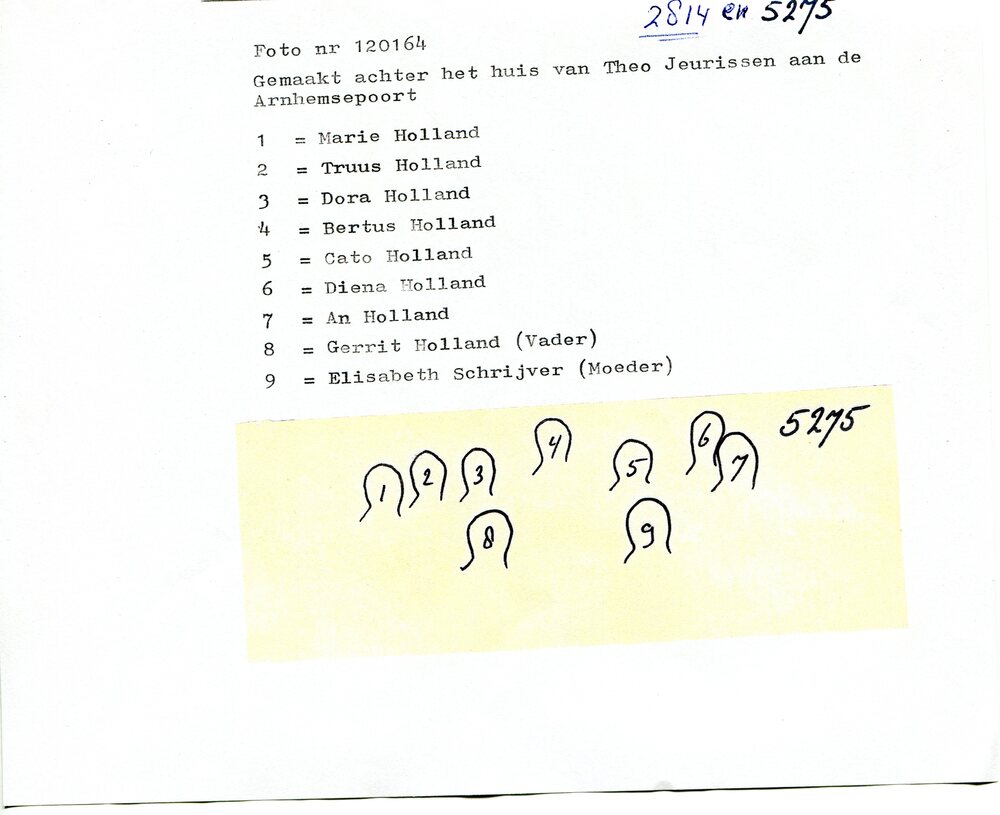 2814 en 5275
Foto nr 120164
Gemaakt achter het huis van Theo Jeurissen aan de
Arnhemsepoort
1 = Marie Holland
2 = Truus Holland
3 = Dora Holland
4 = Bertus Holland
5 = Cato Holland
6 = Diena Holland
7 = An Holland
8 = Gerrit Holland (Vader)
9 = Elisabeth Schrijver (Moeder)
5275
1 2 3 4 5 6 7
8 9